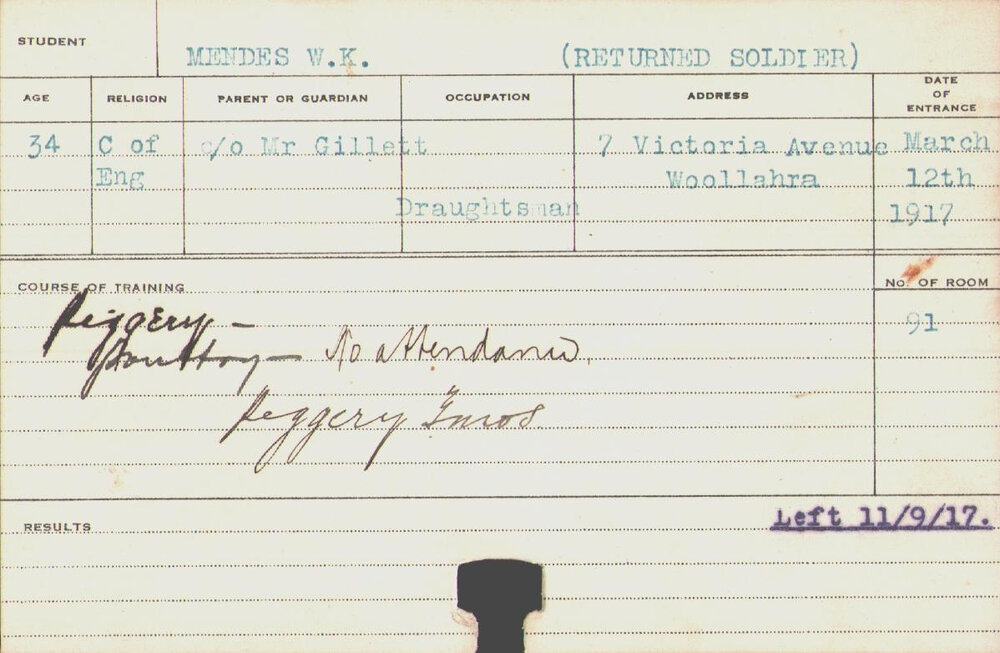 STUDENT
MENDES W.K. (RETURNED SOLDIER)
AGE RELIGION PARENT OR GUARDIAN OCCUPATION ADDRESS DATE OF ENTRANCE
34 C of c/o Mr Gillett 7 Victoria Avenue March
Eng Woollahra 12th
Draughtsman 1917
COURSE OF TRAINING No. OF ROOM
Piggery – 91
Poultry – No attendance.
Piggery 3mos
RESULTS Left 11/9/17.